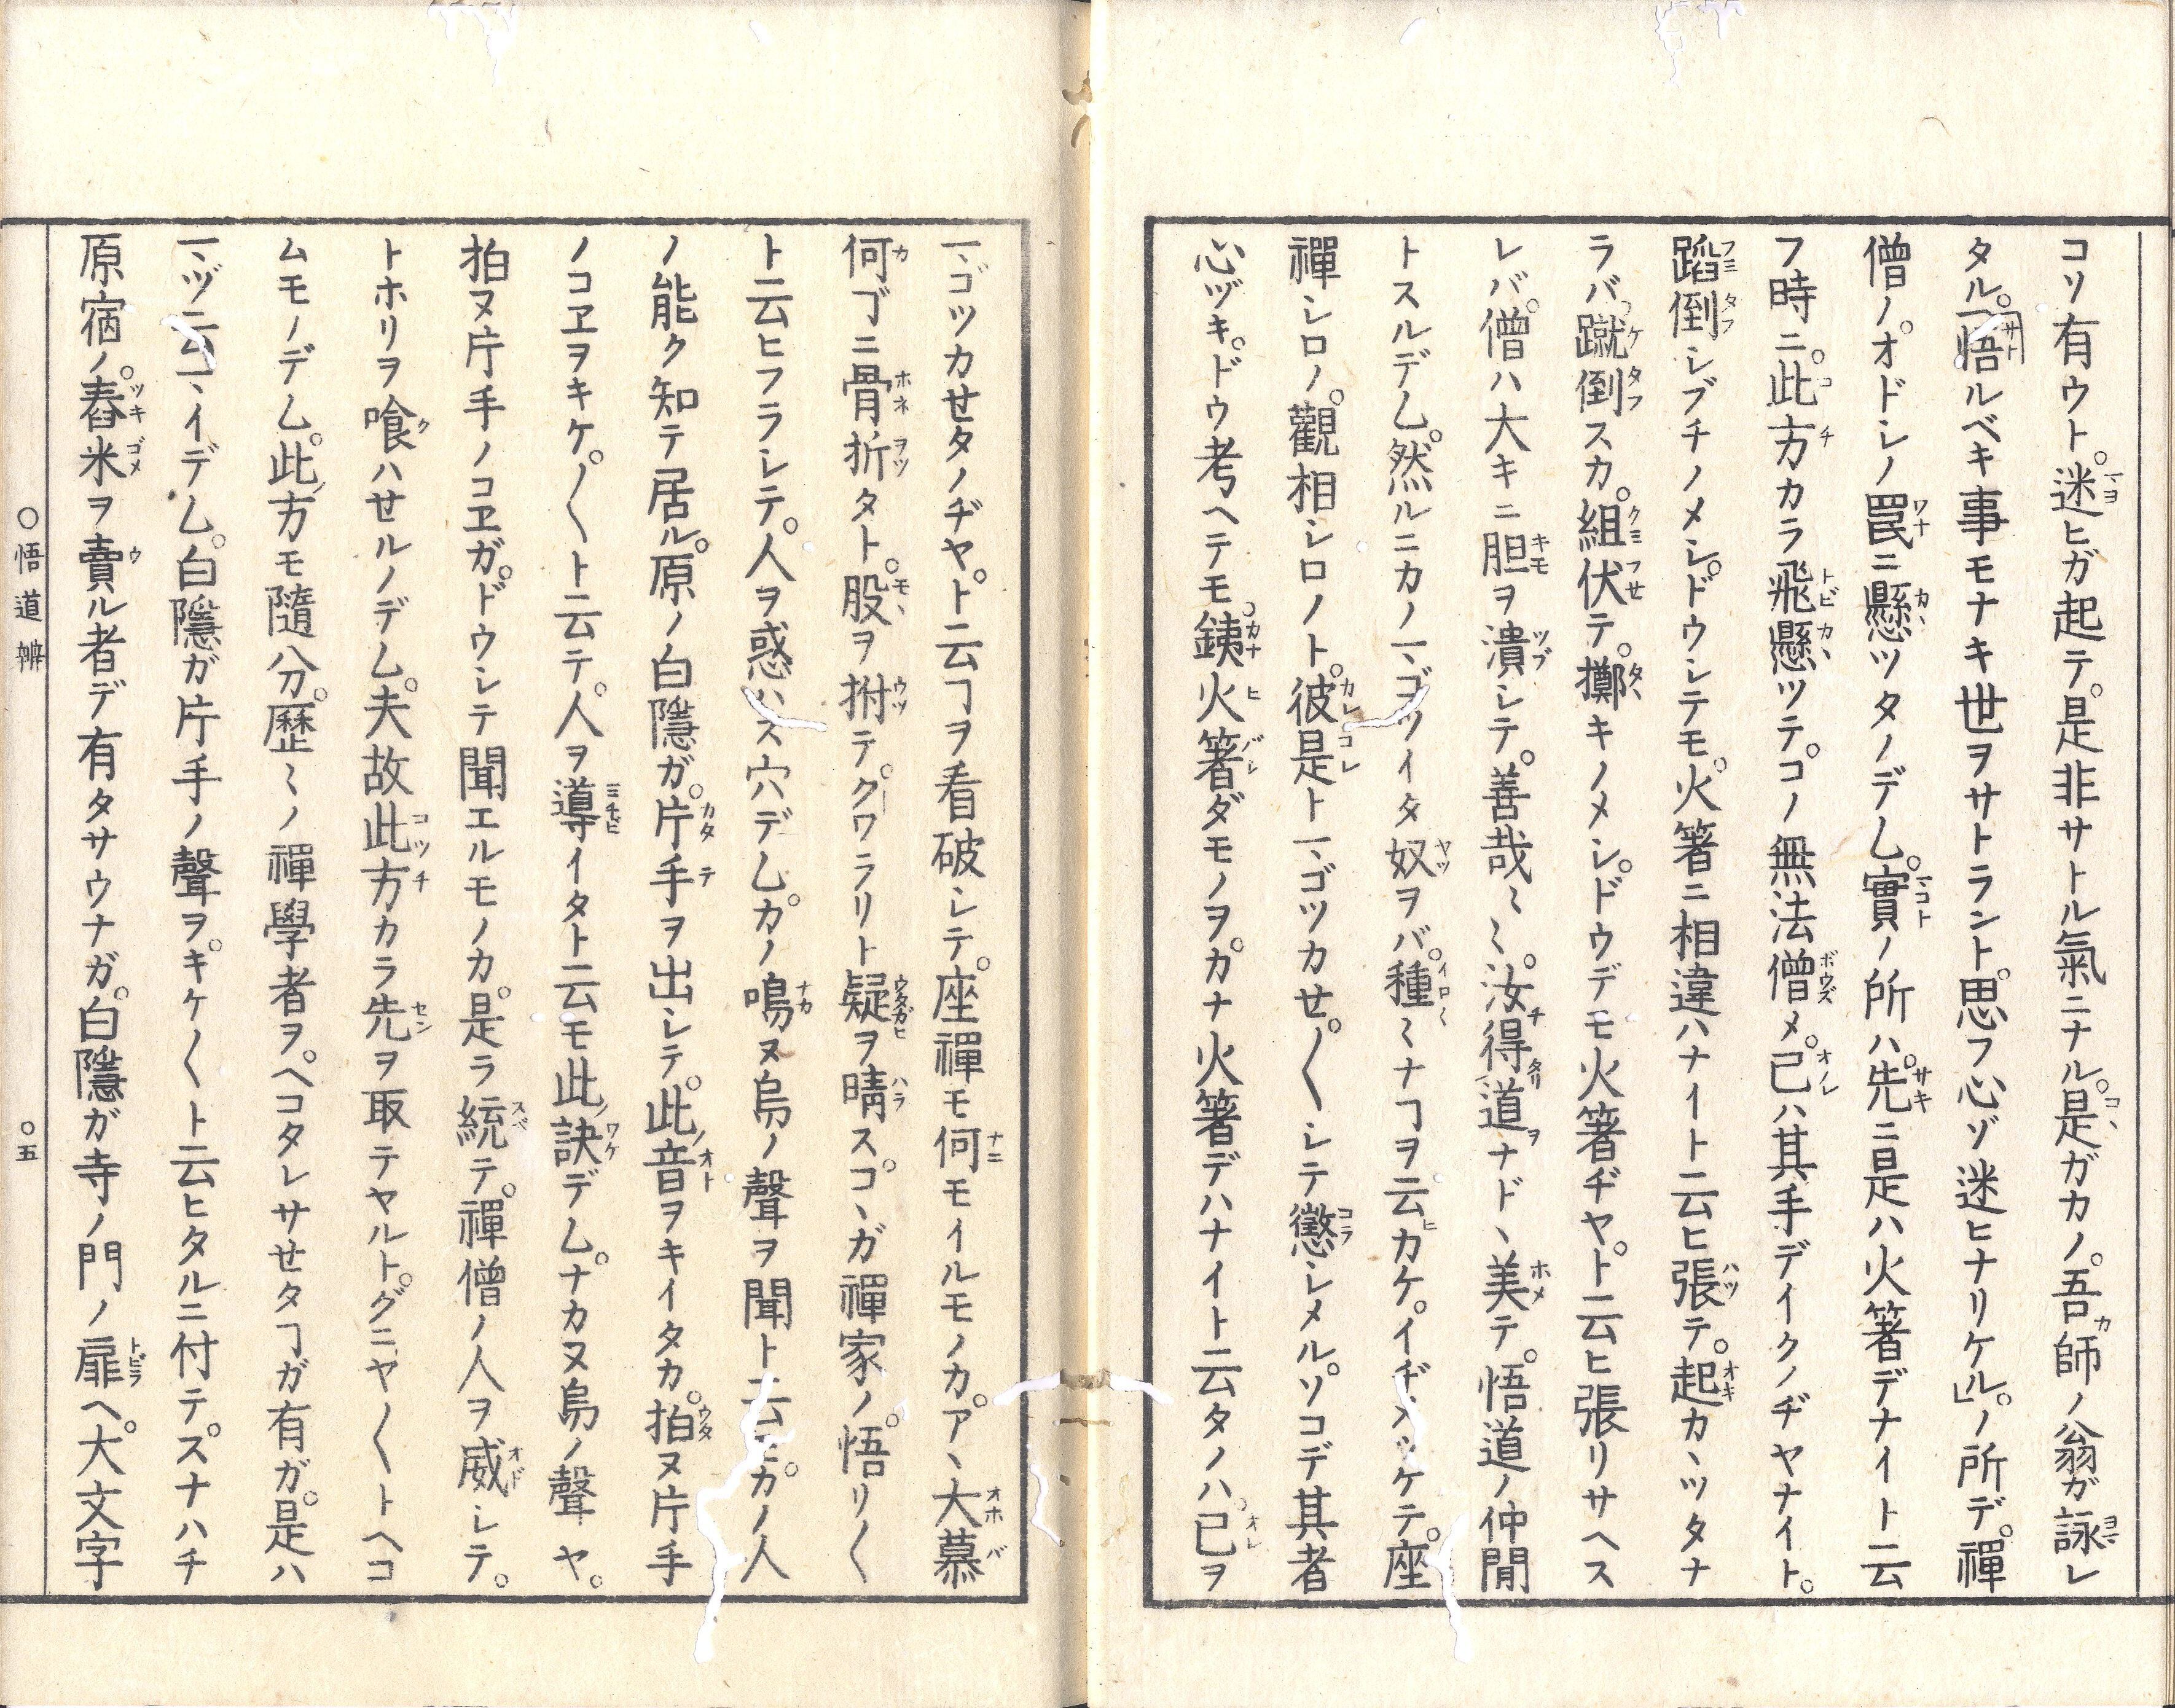 コソ有ウト。迷ヒガ起テ。是非サトル氣ニナル。是ガカノ。吾師ノ翁ガ詠レ
タル。「悟ルベキ事モナキ世ヲサトラント。思フ心ゾ迷ヒナリケル」。ノ所デ。禪
僧ノ。オドシノ罠ニ懸ツタノデム。實ノ所ハ。先ニ是ハ火箸デナイト云
フ時ニ。此方カラ飛懸ツテ。コノ無法僧メ。己ハ其手デイクノヂヤナイト。
蹈倒シブチノメシ。ドウシテモ。火箸ニ相違ハナイト云ヒ張テ。起カヽツタナ
ラバ。蹴倒スカ。組伏テ。擲キノメシ。ドウデモ火箸ヂヤ。ト云ヒ張リサヘス
レバ。僧ハ大キニ胆ヲ潰シテ。善哉〻〻。汝得道ナドヽ美テ。悟道ノ仲間
トスルデム。然ルニカノマゴツイタ奴ヲバ。種〻ナヿヲ云カケ。イヂメツケテ。座
禪シロノ。觀相シロノト。彼是トマゴツカセ〳〵シテ懲シメル。ソコデ其者
心ヅキ。ドウ考ヘテモ。銕火箸ダモノヲ。カナ火箸デハナイト云タノハ。己ヲ
マゴツカセタノヂヤ。ト云ヿヲ看破シテ。座禪モ何モイルモノカ。アヽ大慕
何ゴニ骨折タト。股ヲ拊テ。クワラリト疑ヲ晴ス。コヽガ禪家ノ。悟リ〳〵
ト云ヒフラシテ。人ヲ惑ハス穴デム。カノ鳴ヌ烏ノ聲ヲ聞ト云モ。カノ人
ノ能ク知テ居ル。原ノ白隱ガ。片手ヲ出シテ。此音ヲキイタカ。拍ヌ片手
ノコヱヲキケ。〳〵ト云テ。人ヲ導イタト云モ此訣デム。ナカヌ烏ノ聲ヤ。
拍ヌ片手ノコヱガ。ドウシテ聞エルモノカ。是ラ統テ。禪僧ノ人ヲ威シテ。
トホリヲ喰ハセルノデム。夫故此方カラ先ヲ取テヤルト。グニヤ〳〵トヘコ
ムモノデム。此方モ隨分。歷〻ノ禪學者ヲ。ヘコタレサセタヿガ有ガ。是ハ
マヅ云マイデム。白隱ガ片手ノ聲ヲ。キケ〳〵ト云ヒタルニ付テ。スナハチ
原宿ノ。舂米ヲ賣ル者デ有タサウナガ。白隱ガ寺ノ門ノ扉ヘ。大文字
○悟道辨
○五